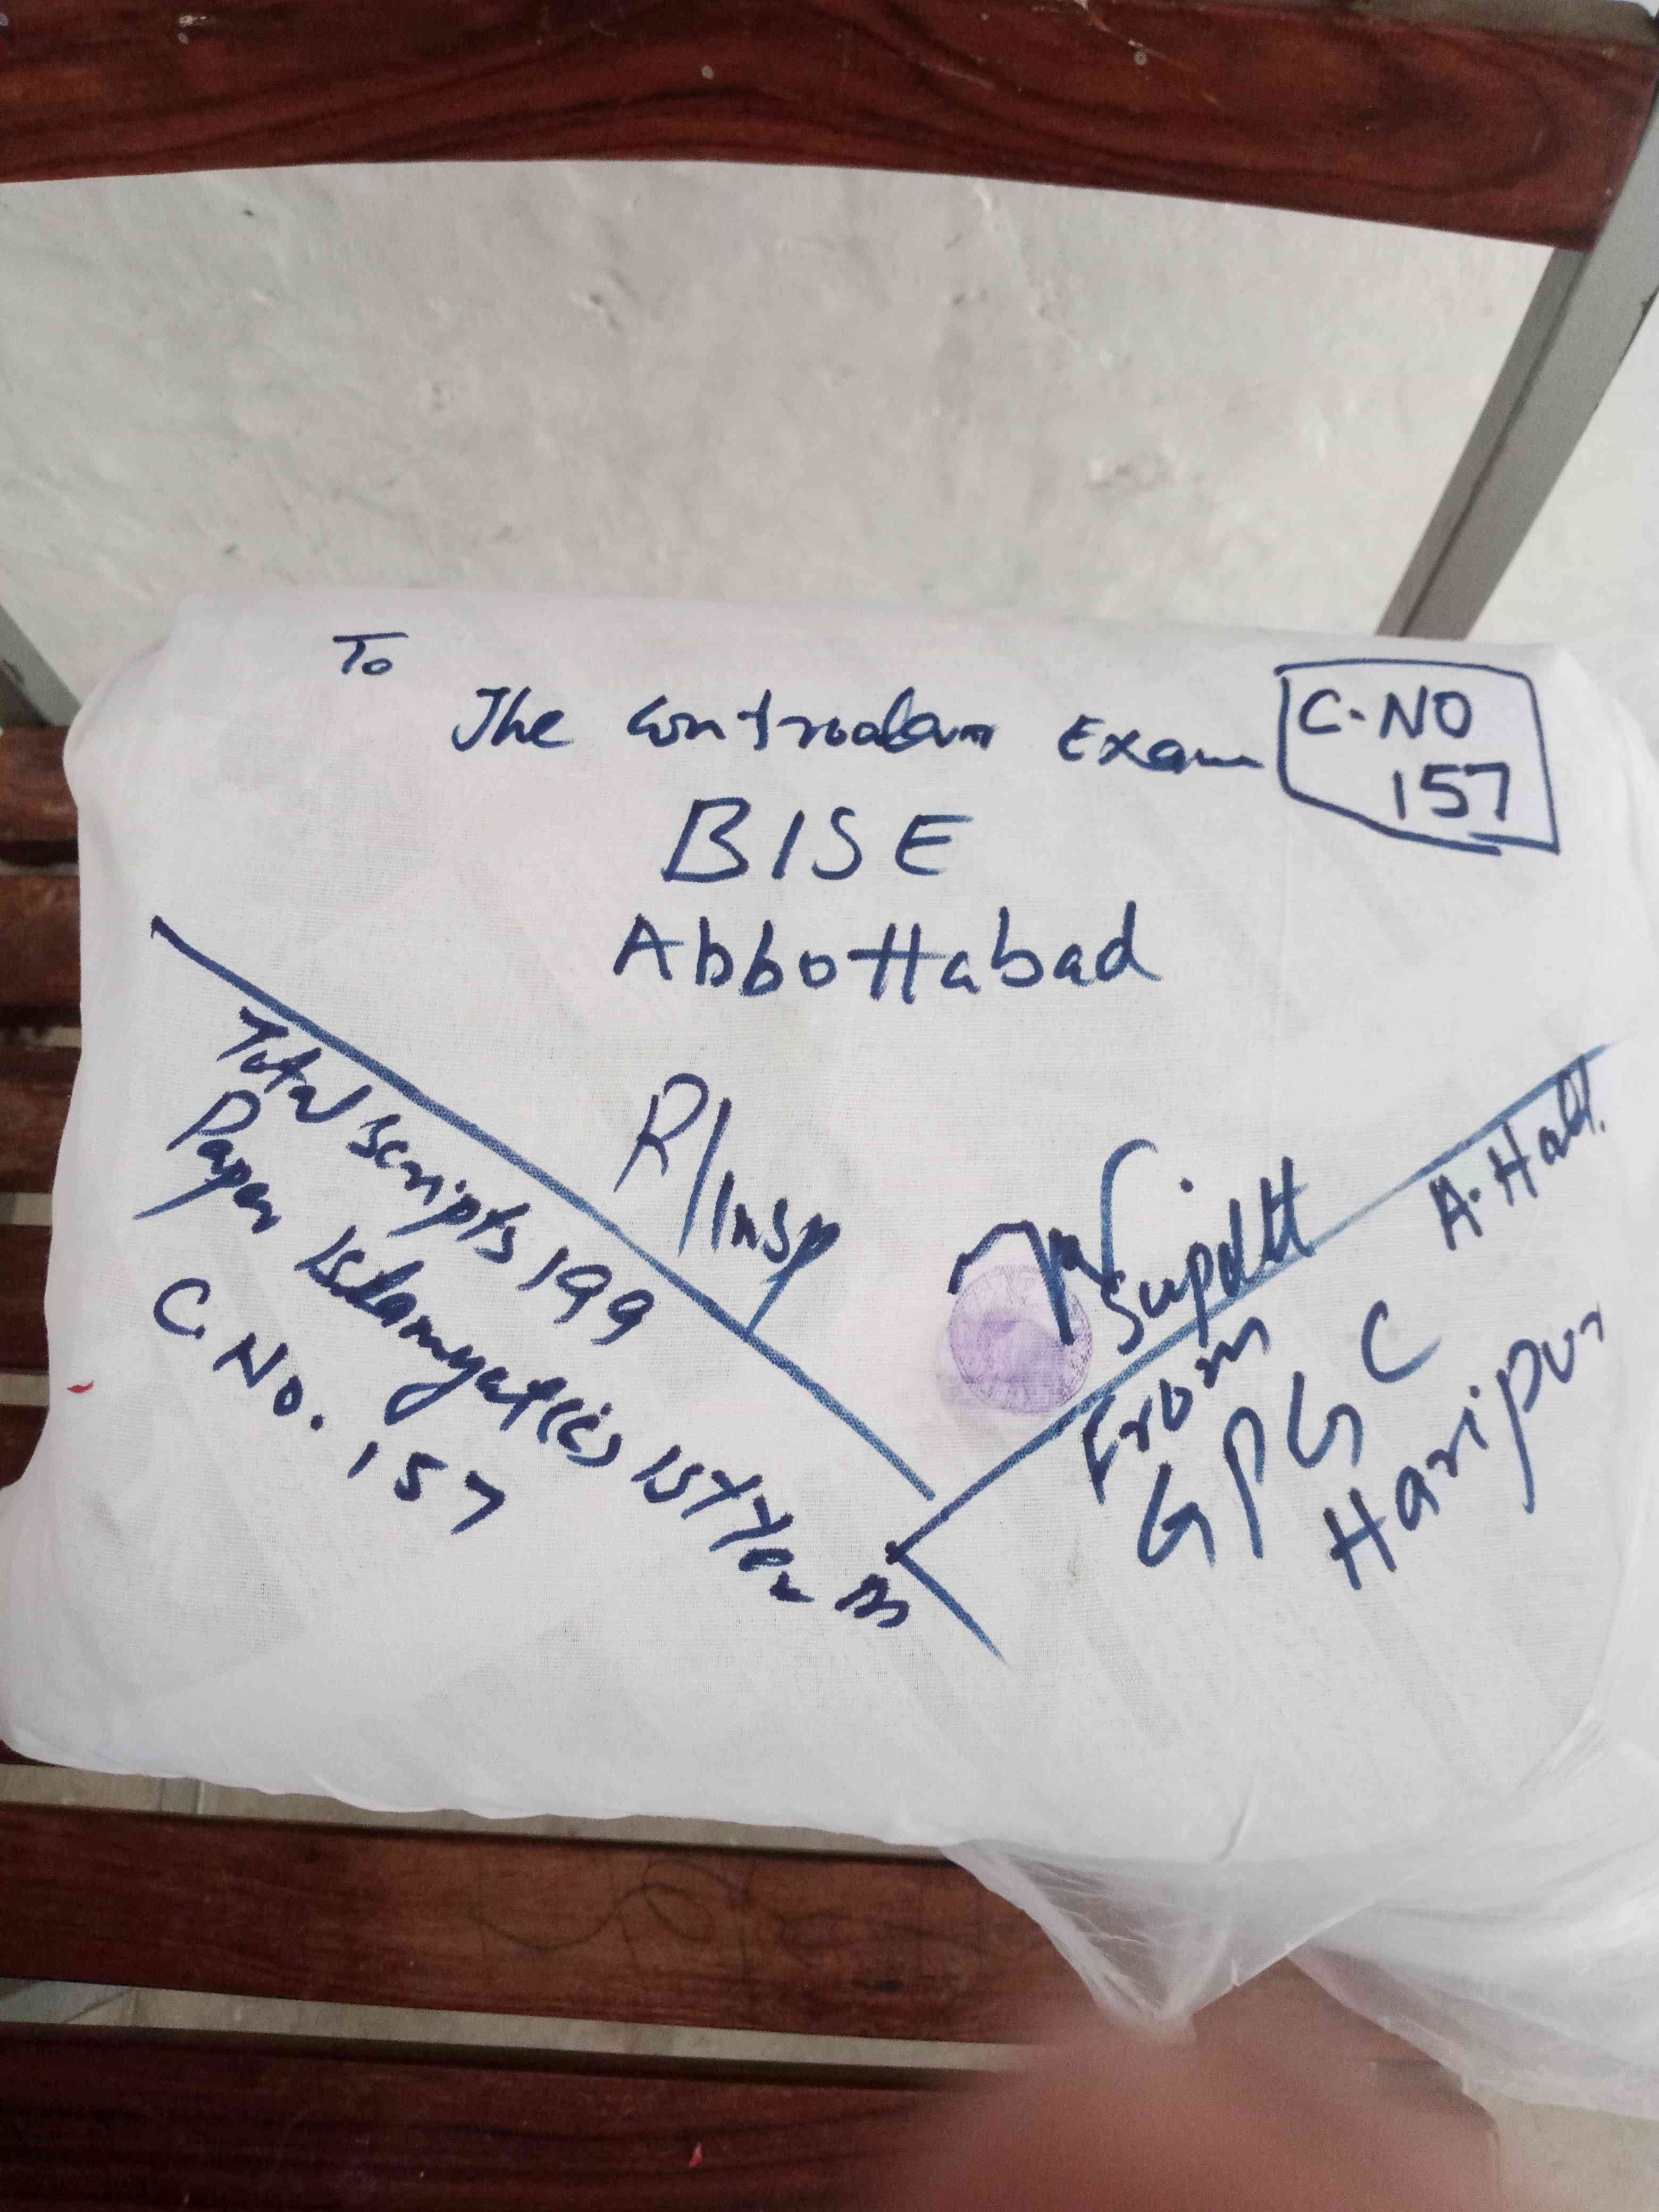 To
The Controller Exam
C. NO
157
BISE
Abbottabad
R/Insp
Supdtt
Total scripts 199
Paper Islamyat(c) 1st Year
C. No. 157
From A. Hall.
GPGC
Haripur